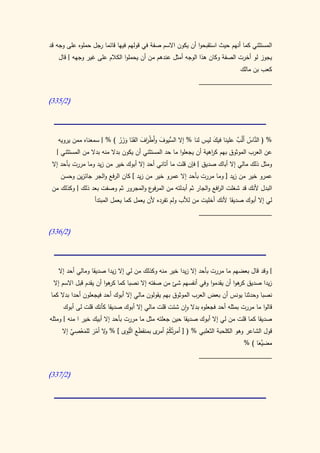 المستثني كما أنهم حيث استقبحوا أن يكون الاسم صفة في قولهم فيها قائما رجل حملوه على وجه قد
يجوز لو أخرت الصفة وكان هذا الوجه أمثل عندهم من أن يحملوا الكلام على غير وجهه ] قال
كعب بن مالك
(335/2)
% ( النّاسُ أَلْبٌ علينا فيكَ ليس لنا % إلا السُّيوفَ وأَطْرافَ القَنَا وَزَرُ ) % [ سمعناه ممن يرويه
عن العرب الموثوق بهم كراهية أن يجعلوا ما حد المستثني أن يكون بدلا منه بدلا من المستثني ]
ومثل ذلك مالي إلا أباك صديق [ فإن قلت ما أتاني أحد إلا أبوك خير من زيد وما مررت بأحد إلا
عمرو خير من زيد ] وما مررت بأحد إلا عمرو خير من زيد [ كان الرفع والجر جائزين وحسن
البدل لأنك قد شغلت الرافع والجار ثم أبدلته من المرفوع والمجرور ثم وصفت بعد ذلك ] وكذلك من
لي إلا أبوك صديقا لأنك أخليت من للأب ولم تفرده لأن يعمل كما يعمل المبتدأ
(336/2)
[ وقد قال بعضهم ما مررت بأحد إلا زيدا خير منه وكذلك من لي إلا زيدا صديقا ومالي أحد إلا
زيدا صديق كرهوا أن يقدموا وفي أنفسهم شئ من صفته إلا نصبا كما كرهوا أن يقدم قبل الاسم إلا
نصبا وحدثنا يونس أن بعض العرب الموثوق بهم يقولون مالي إلا أبوك أحد فيجعلون أحدا بدلا كما
قالوا ما مررت بمثله أحد فجعلوه بدلا وإن شئت قلت مالي إلا أبوك صديقا كأنك قلت لى أبوك
صديقا كما قلت من لي إلا أبوك صديقا حين جعلته مثل ما مررت بأحد إلا أبيك خير ا منه ] ومثله
قول الشاعر وهو الكلحبة الثعلبي % ( [ أَمرتُكُمُ أَمرى بمنقطَعِ اللَّوَى ] % ولا أَمْرَ للمَعْصِيِّ إلا
مضيَّعَا ) %
(337/2)